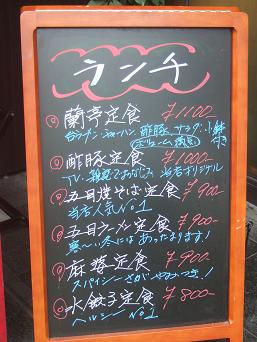 ランチ
蘭亭定食 ¥1100-
台ラーメン、チャーハン、酢豚、サラダ、小鉢付き
ボリューム満点
酢豚定食 ¥1000-
TV・雑誌でおなじみ 当店オリジナル
五目焼そば定食 ¥900-
当店人気No1
五目ラーメン定食 ¥900-
寒〜い冬にはあったまります!
麻婆定食 ¥900-
スパイシーさがやみつき!
水餃子定食 ¥800-
ヘルシーNo1